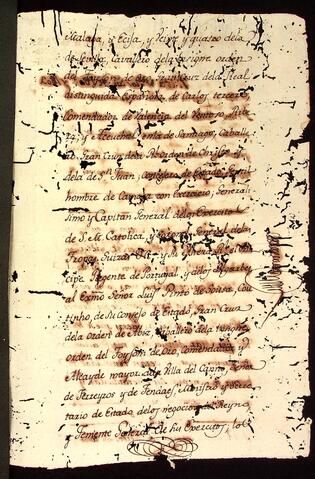 Malaga, y Ecija, y Reg.r y quatro de la
de Sevilla, Cavallero de la insigne orden
del Toyson de Oro, Gran Cruz de la Real
distinguida Española de Carlos tercero,
Comendador de Valencia del Ventoso,
y Aceuchal en la de Santiago, Caballe
Gran Cruz de la R.l orden de Christo, y
de la de S.n Juan, Consejero de Estado, Gentil
hombre de Camara con Exercicio, Generali
simo y Capitan General de los Exercitos
de S. M. Catolica, y General de las
Tropas Suizas &.a y su Alteza R.l el Prin
cipe Regente de Portugal, y de los Algarbes
al Exmo Señor Luis Pinto de Sousa Cou
tinho, de su Consejo de Estado, Gran Cruz
de la Orden de Abiz, Caballero de la insigne
orden del Toyson de Oro, Comendador y
Alcayde mayor de la Villa del Cano, Señor
de Ferreyros y de Tendaes, Ministro y Secre
tario de Estado, de los negocios del Reyno
y Teniente General de sus Exercitos; los